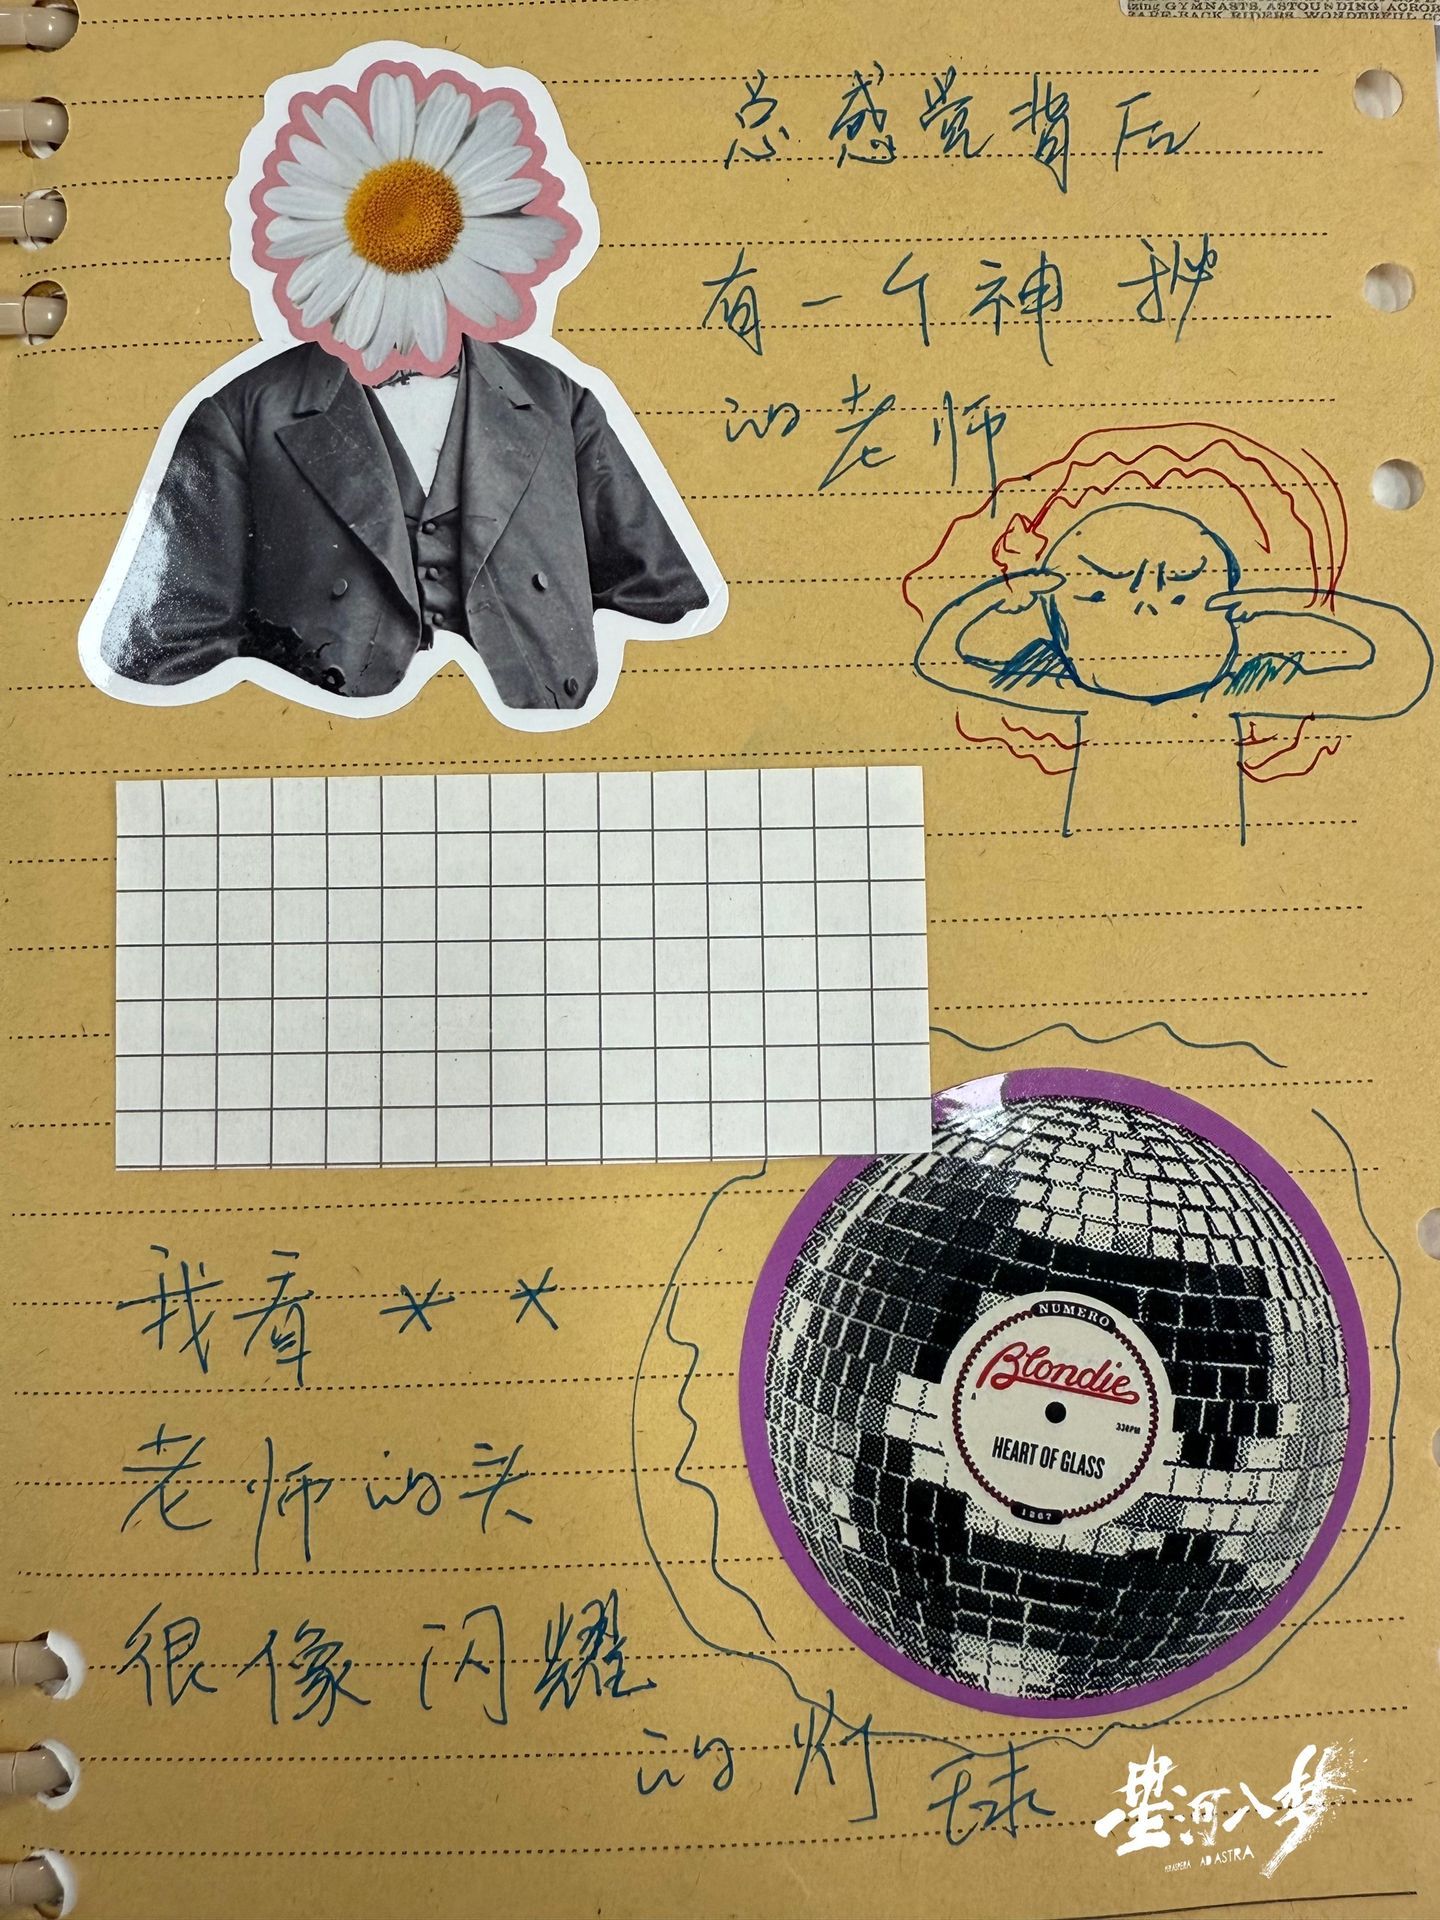 GYMNASTS, ASTOUNDING ACROB
BACK RIDERS, WONDERFUL CO
总感觉背后
有一个神秘
的老师
NUMERO
Blondie
A
33RPM
HEART OF GLASS
1267
我看**
老师的头
很像闪耀
的灯球
星河入梦
PER ASPERA AD ASTRA